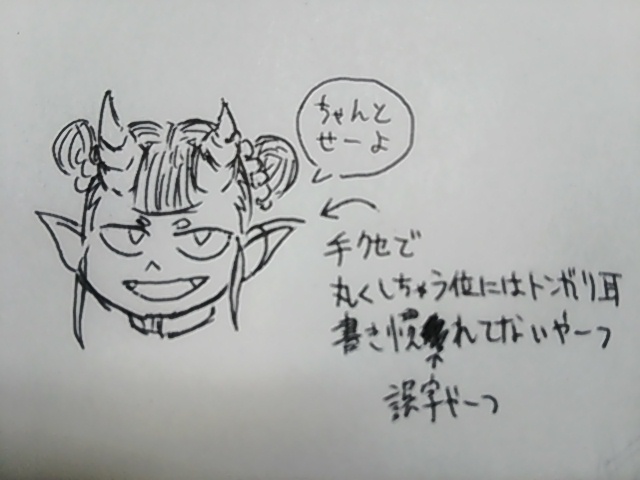 ちゃんと
せーよ
手クセで
丸くしちゃう位にはトンガリ耳
書き慣れてないやーつ
誤字やーつ